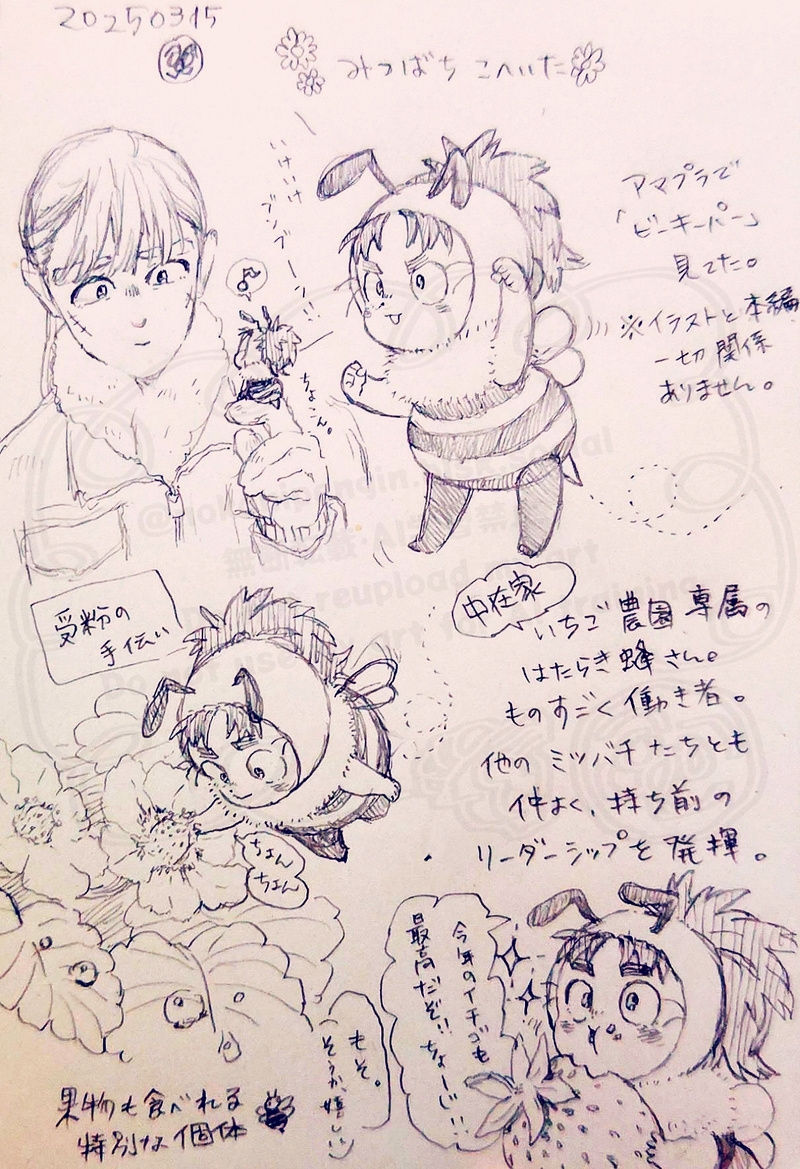 20250315
みつばち こへいた
いけいけ
ブンブーン!!
アマプラで
「ビーキーパー」
見てた。
※イラストと本編
一切関係
ありません。
♪
ちょこん。
受粉の
手伝い
中在家
いちご農園専属の
はたらき蜂さん。
ものすごく働き者。
他のミツバチたちとも
仲よく、持ち前の
リーダーシップを発揮。
ちょん
ちょん
今年のイチゴも
最高だぞ!!ちょーじ!!
もそ。
そうか、嬉しい
果物も食べれる
特別な個体
無断転載・AI学習禁止
reupload my art